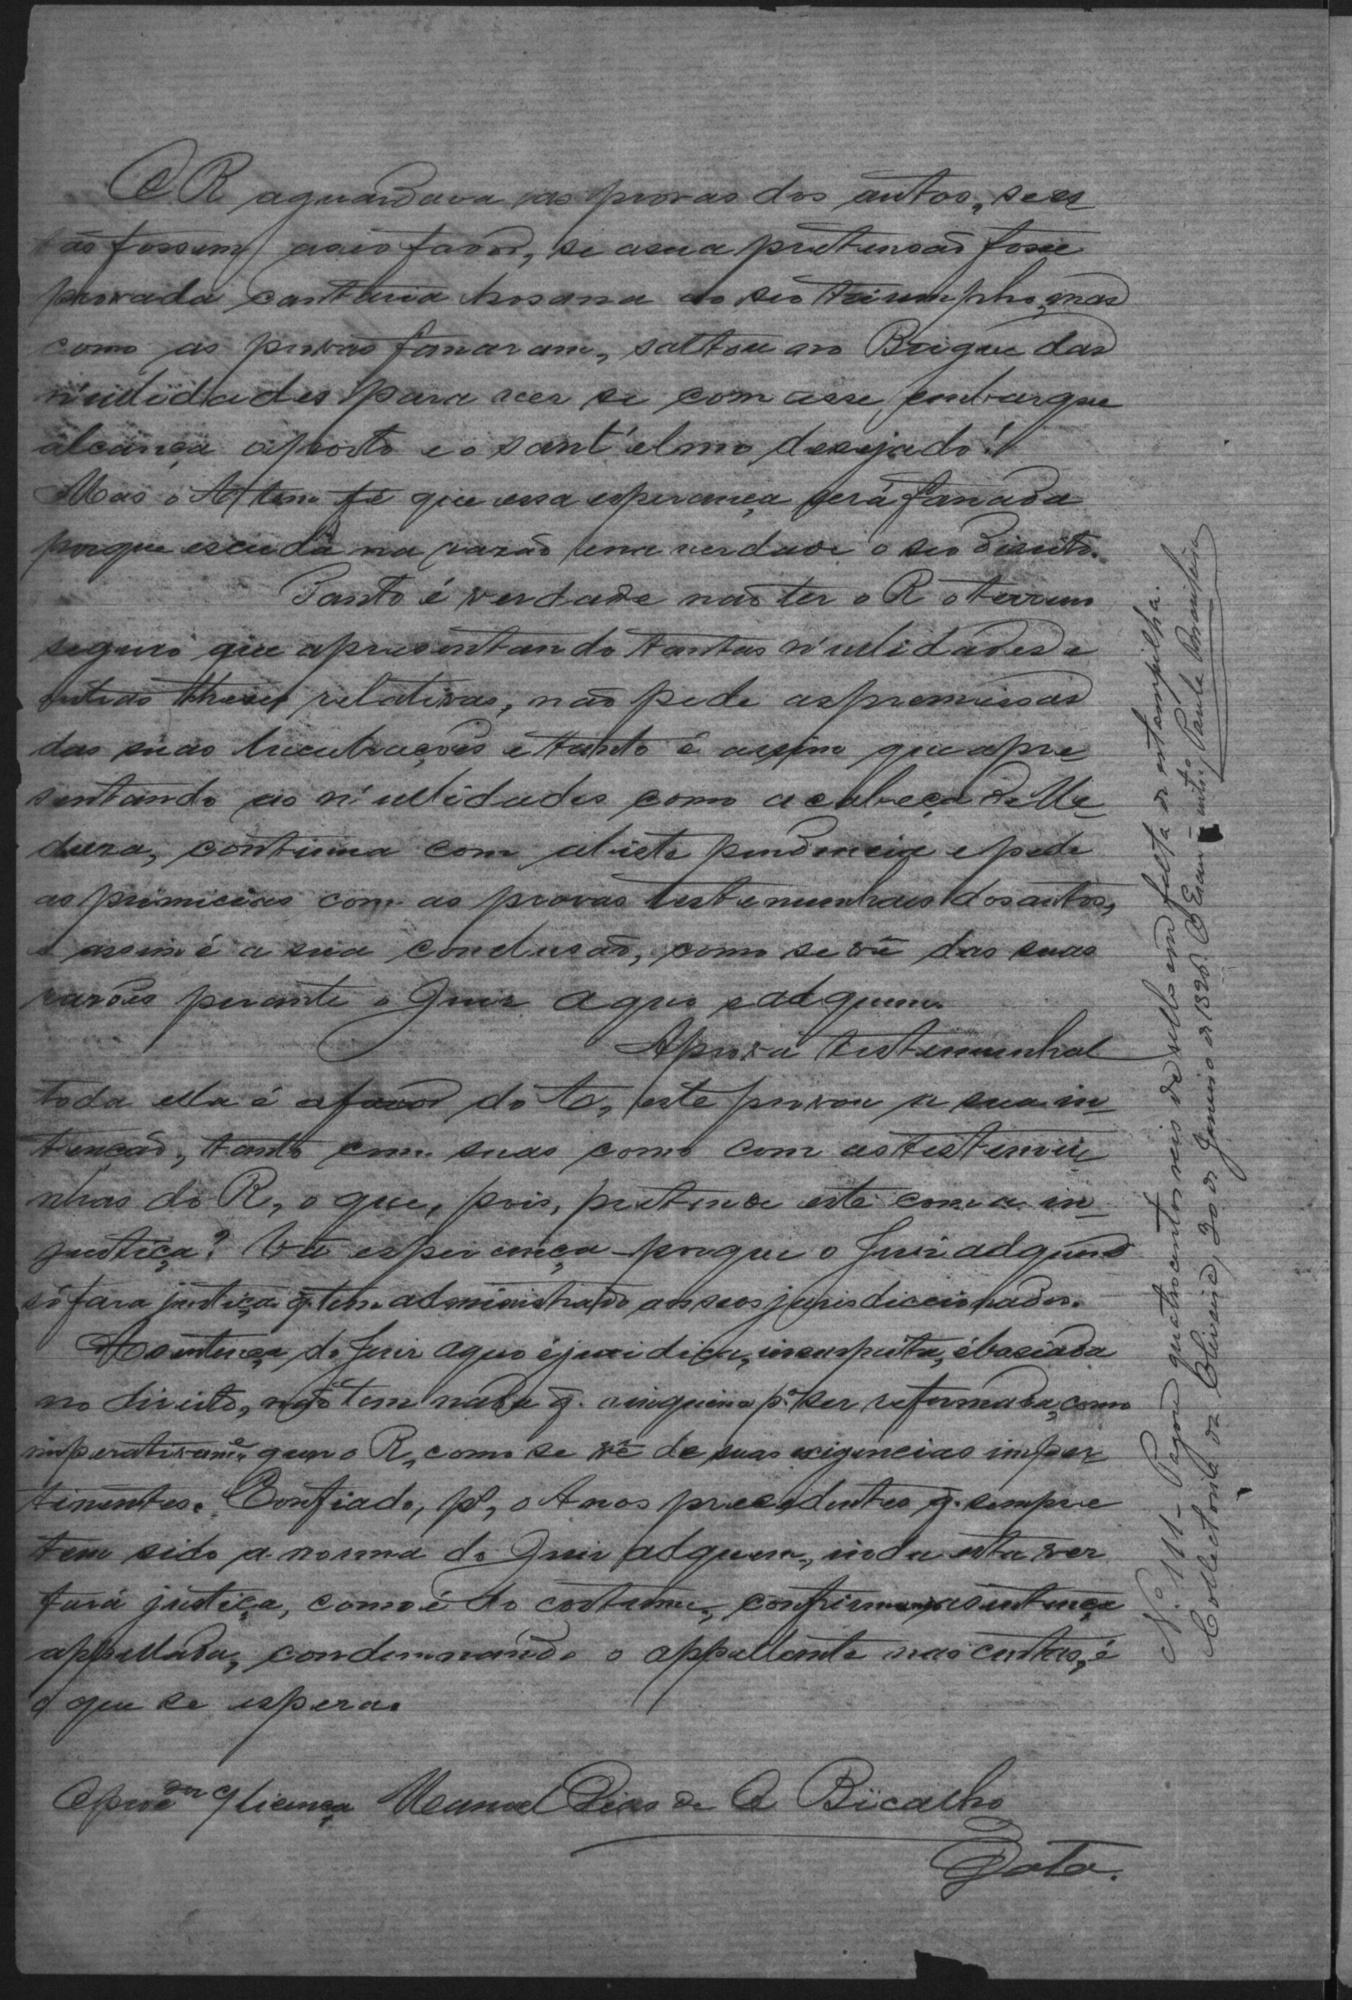 O R aguardava nas provas dos autos, se es
tas fossem a seo favor, se a sua pretensão fosse
provada cantaria hosana ao seo triumpho, mas
como as provas fanaram, saltou no Brigue das
nullidades para ver se com esse embarque
alcança o porto e o sant'elmo desejado!
Mas o A tem fé que essa esperança será fanada
porque escuda na razão e na verdade o seo direito.
Tanto é verdade não ter o R o terreno
seguro que apresentando tantas nullidades e
outras theses relativas, não pede as premissas
das suas lucubrações e tanto é assim que apre
sentando as nullidades como a cabeça de Me-
dusa, continua com
e pede
as primicias com as provas testemunhaes dos autos,
e assim é a sua conclusão, como se vê das suas
razões perante o Juiz a quo e ad quem.
A prova testemunhal
toda ella é a favor do A, este provou a sua in-
tenção, tanto com suas como com as testemu
nhas do R, o que, pois, pretende este com a in-
justiça? Vã esperança porque o Juiz ad quem
só fará justiça q. tem administrado aos seos jurisdiccionados.
A sentença do Juiz a quo é juridica, insuspeita, é baseada
no direito, não tem nada q. vinguem pª ser reformada, como
imperativamᵉ quer o R, como se vê de suas exigencias imper
tinentes. Confiado, pˢ, o A nos precedentes q. sempre
tem sido a norma do Juiz ad quem, inda esta vez
fará justiça, como é do costume, confirmando a sentença
appellada, condemnando o appellante nas custas, é
o que se espera.
O procᵈᵒʳ c/ licença Manoel Dias de O Bicalho
Data.
Nº 111 - Pagou quatrocentos reis de sello em falta de estampilha.
Collectoria da Oliveira, 30 de Janeiro de 1892. O Escrivão